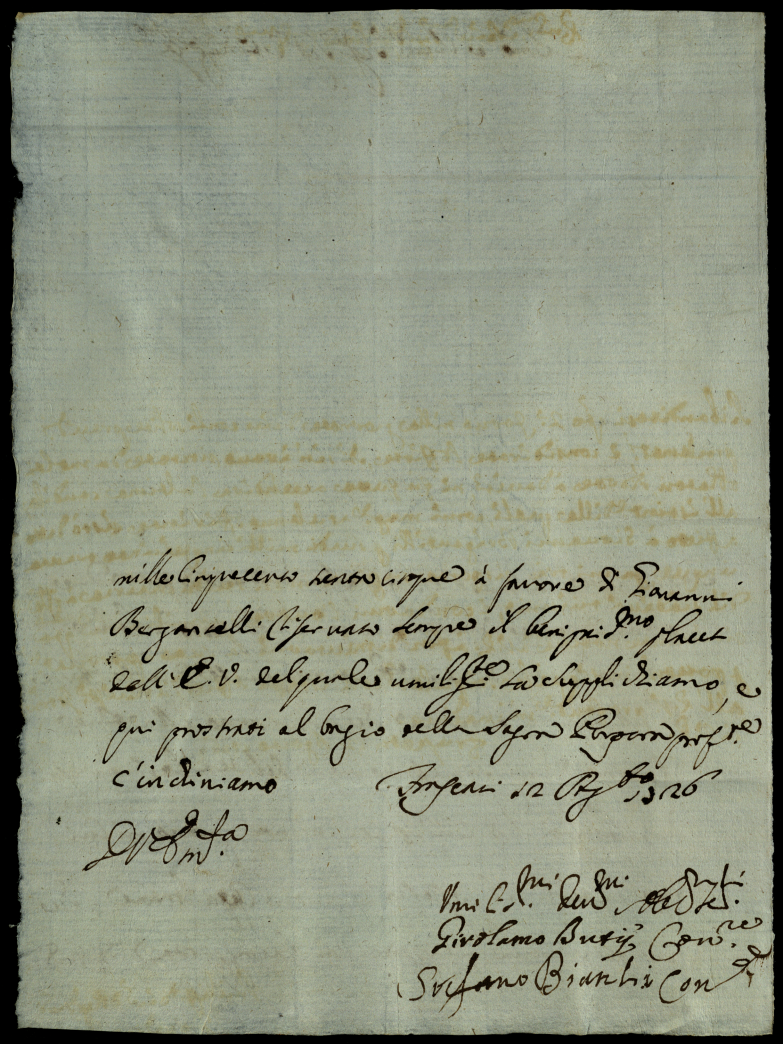 mille Cinquecento trenta cinque à favore di Giovanni
Bergantelli riservato sempre il benig.mo placet
dell' E. V. del quale umilis.te La Supplichiamo, e
qui prostrati al bagio della Sagra Porpora prof.te
c'inchiniamo Frascati 12 Ag.to 1726
Umilis.mi Dev.mi
Girolamo Butij Con.re
Stefano Bianchi Con.re